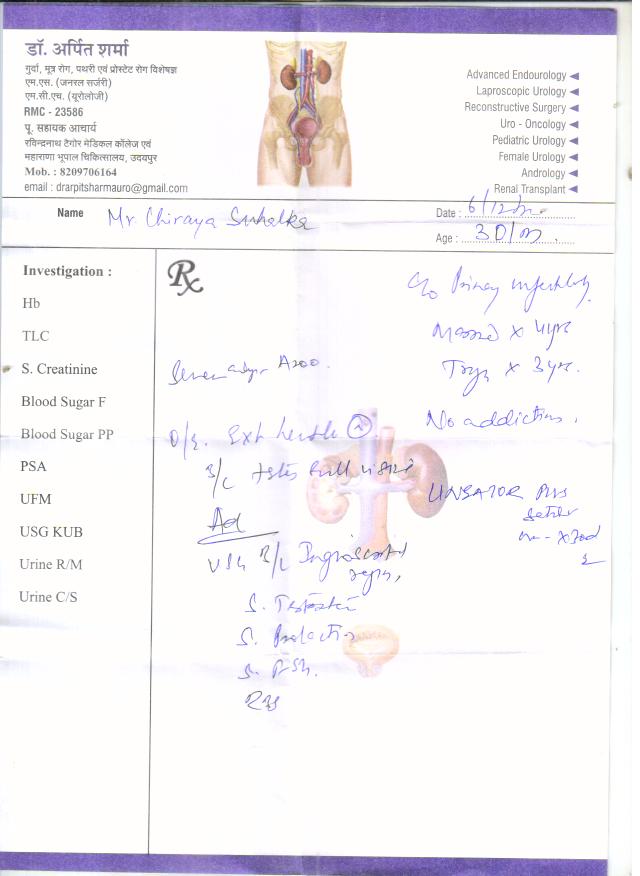 डॉ. अर्पित शर्मा
गुर्दा, मूत्र रोग, पथरी एवं प्रोस्टेट रोग विशेषज्ञ
एम.एस. (जनरल सर्जरी)
एम.सी.एच. (यूरोलोजी)
RMC - 23586
पू. सहायक आचार्य
रविन्द्रनाथ टैगोर मेडिकल कॉलेज एवं
महाराणा भूपाल चिकित्सालय, उदयपुर
Mob. : 8209706164
email : drarpitsharmauro@gmail.com
Advanced Endourology
Laproscopic Urology
Reconstructive Surgery
Uro - Oncology
Pediatric Urology
Female Urology
Andrology
Renal Transplant
Name Mr Chiraya
Date : 6/12
Age : 30/m
Investigation :
Hb
TLC
S. Creatinine
Blood Sugar F
Blood Sugar PP
PSA
UFM
USG KUB
Urine R/M
Urine C/S
Rx
c/o Primary infertility
Married x 4yrs
Trying x 3yr.
No addiction.
Semen Azoo.
O/E. Ext N
B/L testes full
Adv
USG B/L Inguinoscrotal region,
S. Prolactin
S. FSH.
RBS